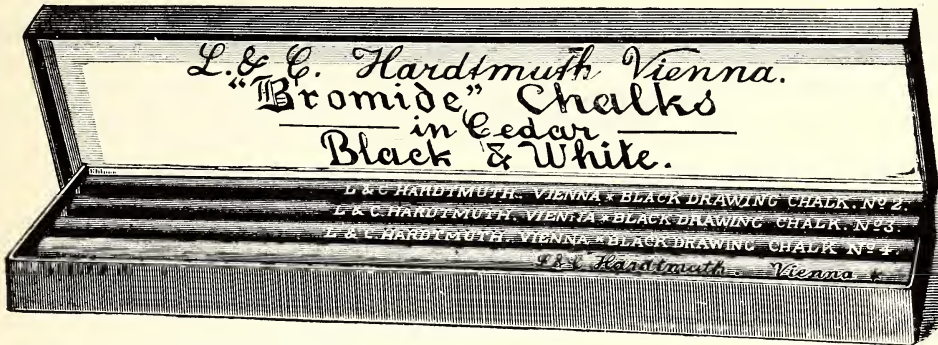 L. & C. Hardtmuth Vienna.
"Bromide" Chalks
in Cedar
Black & White.
L & C HARDTMUTH. VIENNA * BLACK DRAWING CHALK. Nº 2.
L & C. HARDTMUTH. VIENNA * BLACK DRAWING CHALK. Nº 3.
L & C. HARDTMUTH. VIENNA * BLACK DRAWING CHALK Nº 4.
L & C Hardtmuth. Vienna